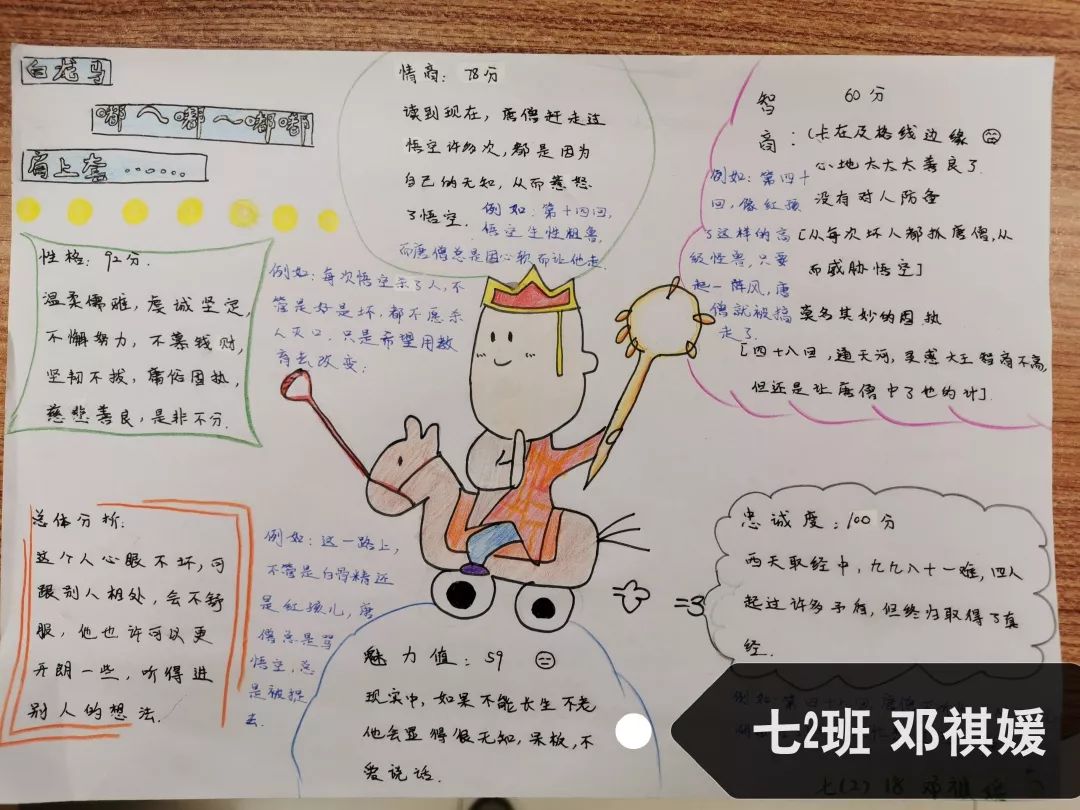 白龙马
嘟~嘟~嘟嘟
肩上套……
情商：78分
读到现在，唐僧赶走过
悟空许多次，都是因为
自己的无知，从而惹怒
了悟空.
例如：第十四回，
悟空生性粗鲁，
而唐僧总是因心软而让他走.
智商：
60分
(卡在及格线边缘
心地太太太善良了.
没有对人防备
[从每次坏人都抓唐僧，从
而威胁悟空]
莫名其妙的固执
[四十八回，通天河，灵感大王智商不高，
但还是让唐僧中了他的计].
例如：第四十
回，像红孩
了这样的高
级怪兽，只要
起一阵风，唐
僧就被搞
走了.
性格：92分.
温柔儒雅，虔诚坚定，
不懈努力，不慕钱财，
坚韧不拔，庸俗固执，
慈悲善良，是非不分.
例如：每次悟空杀了人，不
管是好是坏，都不愿杀
人灭口，只是希望用教
育去改变；
总体分析：
这个人心眼不坏，可
跟别人相处，会不舒
服，他也许可以更
开朗一些，听得进
别人的想法.
例如：这一路上，
不管是白骨精还
是红孩儿，唐
僧总是骂
悟空，总
是被捉
去.
魅力值：59
现实中，如果不能长生不老
他会显得很无知，呆板，不
爱说话.
忠诚度：100分
西天取经中，九九八十一难，四人
起过许多矛盾，但终归取得了真
经.
例如：第四十八回
七2班 邓祺媛
七(2) 18 邓祺媛